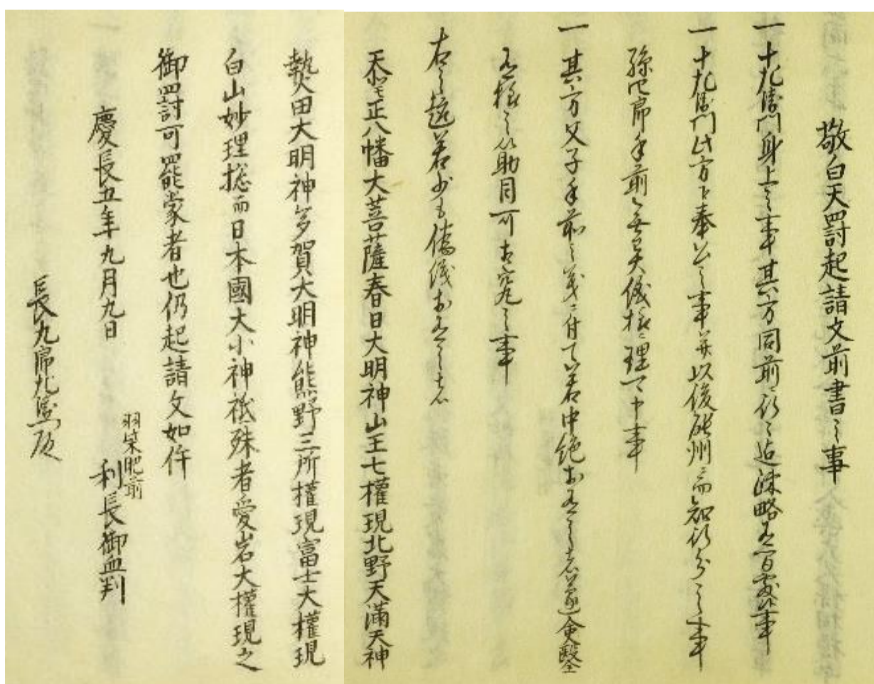 敬白天罰起請文前書之事
一十左衛門身上之事其方同前ニ不可有疎略事
一十左衛門此方下奉公之事并以後能州ニ而知行分之事
孫四郎手前無異儀様ニ理可申事
一其方父子手前之義ニ付而若中絶於有之者遂会盤
有様之以助目可相究之事
右之趣若少も偽儀於有之者
天照正八幡大菩薩春日大明神山王七權現北野天滿天神
熱田大明神多賀大明神熊野三所權現冨士大權現
白山妙理揔而日本國大小神祇殊者愛宕大權現之
御罰可罷蒙者也仍起請文如件
慶長五年九月九日
羽柴肥前
利長御血判
長九郎左衛門殿